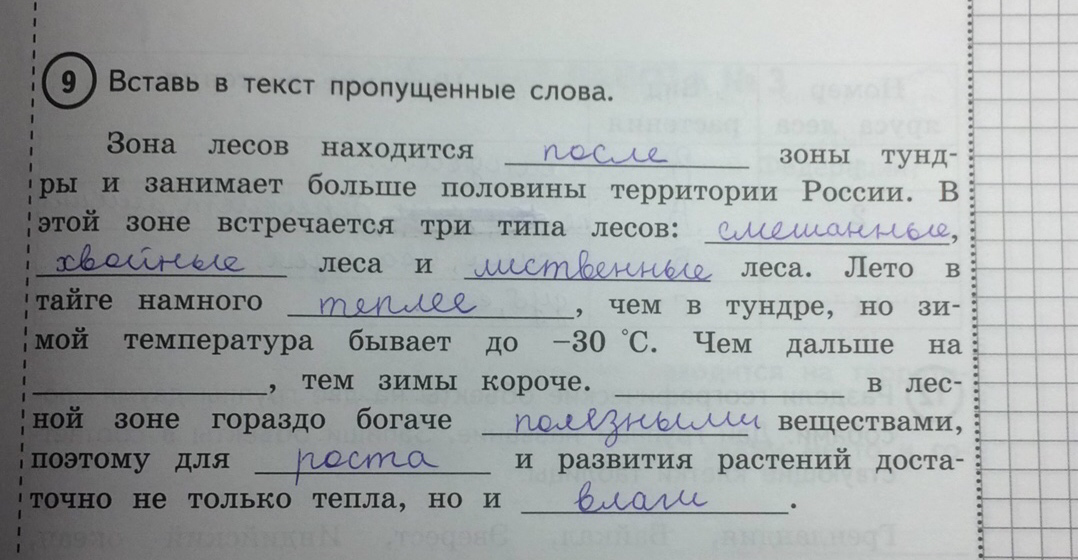 9 Вставь в текст пропущенные слова.
Зона лесов находится после зоны тунд-
ры и занимает больше половины территории России. В
этой зоне встречается три типа лесов: смешанные,
хвойные леса и лиственные леса. Лето в
тайге намного теплее, чем в тундре, но зи-
мой температура бывает до −30 °С. Чем дальше на
, тем зимы короче. в лес-
ной зоне гораздо богаче полезными веществами,
поэтому для роста и развития растений доста-
точно не только тепла, но и влаги.